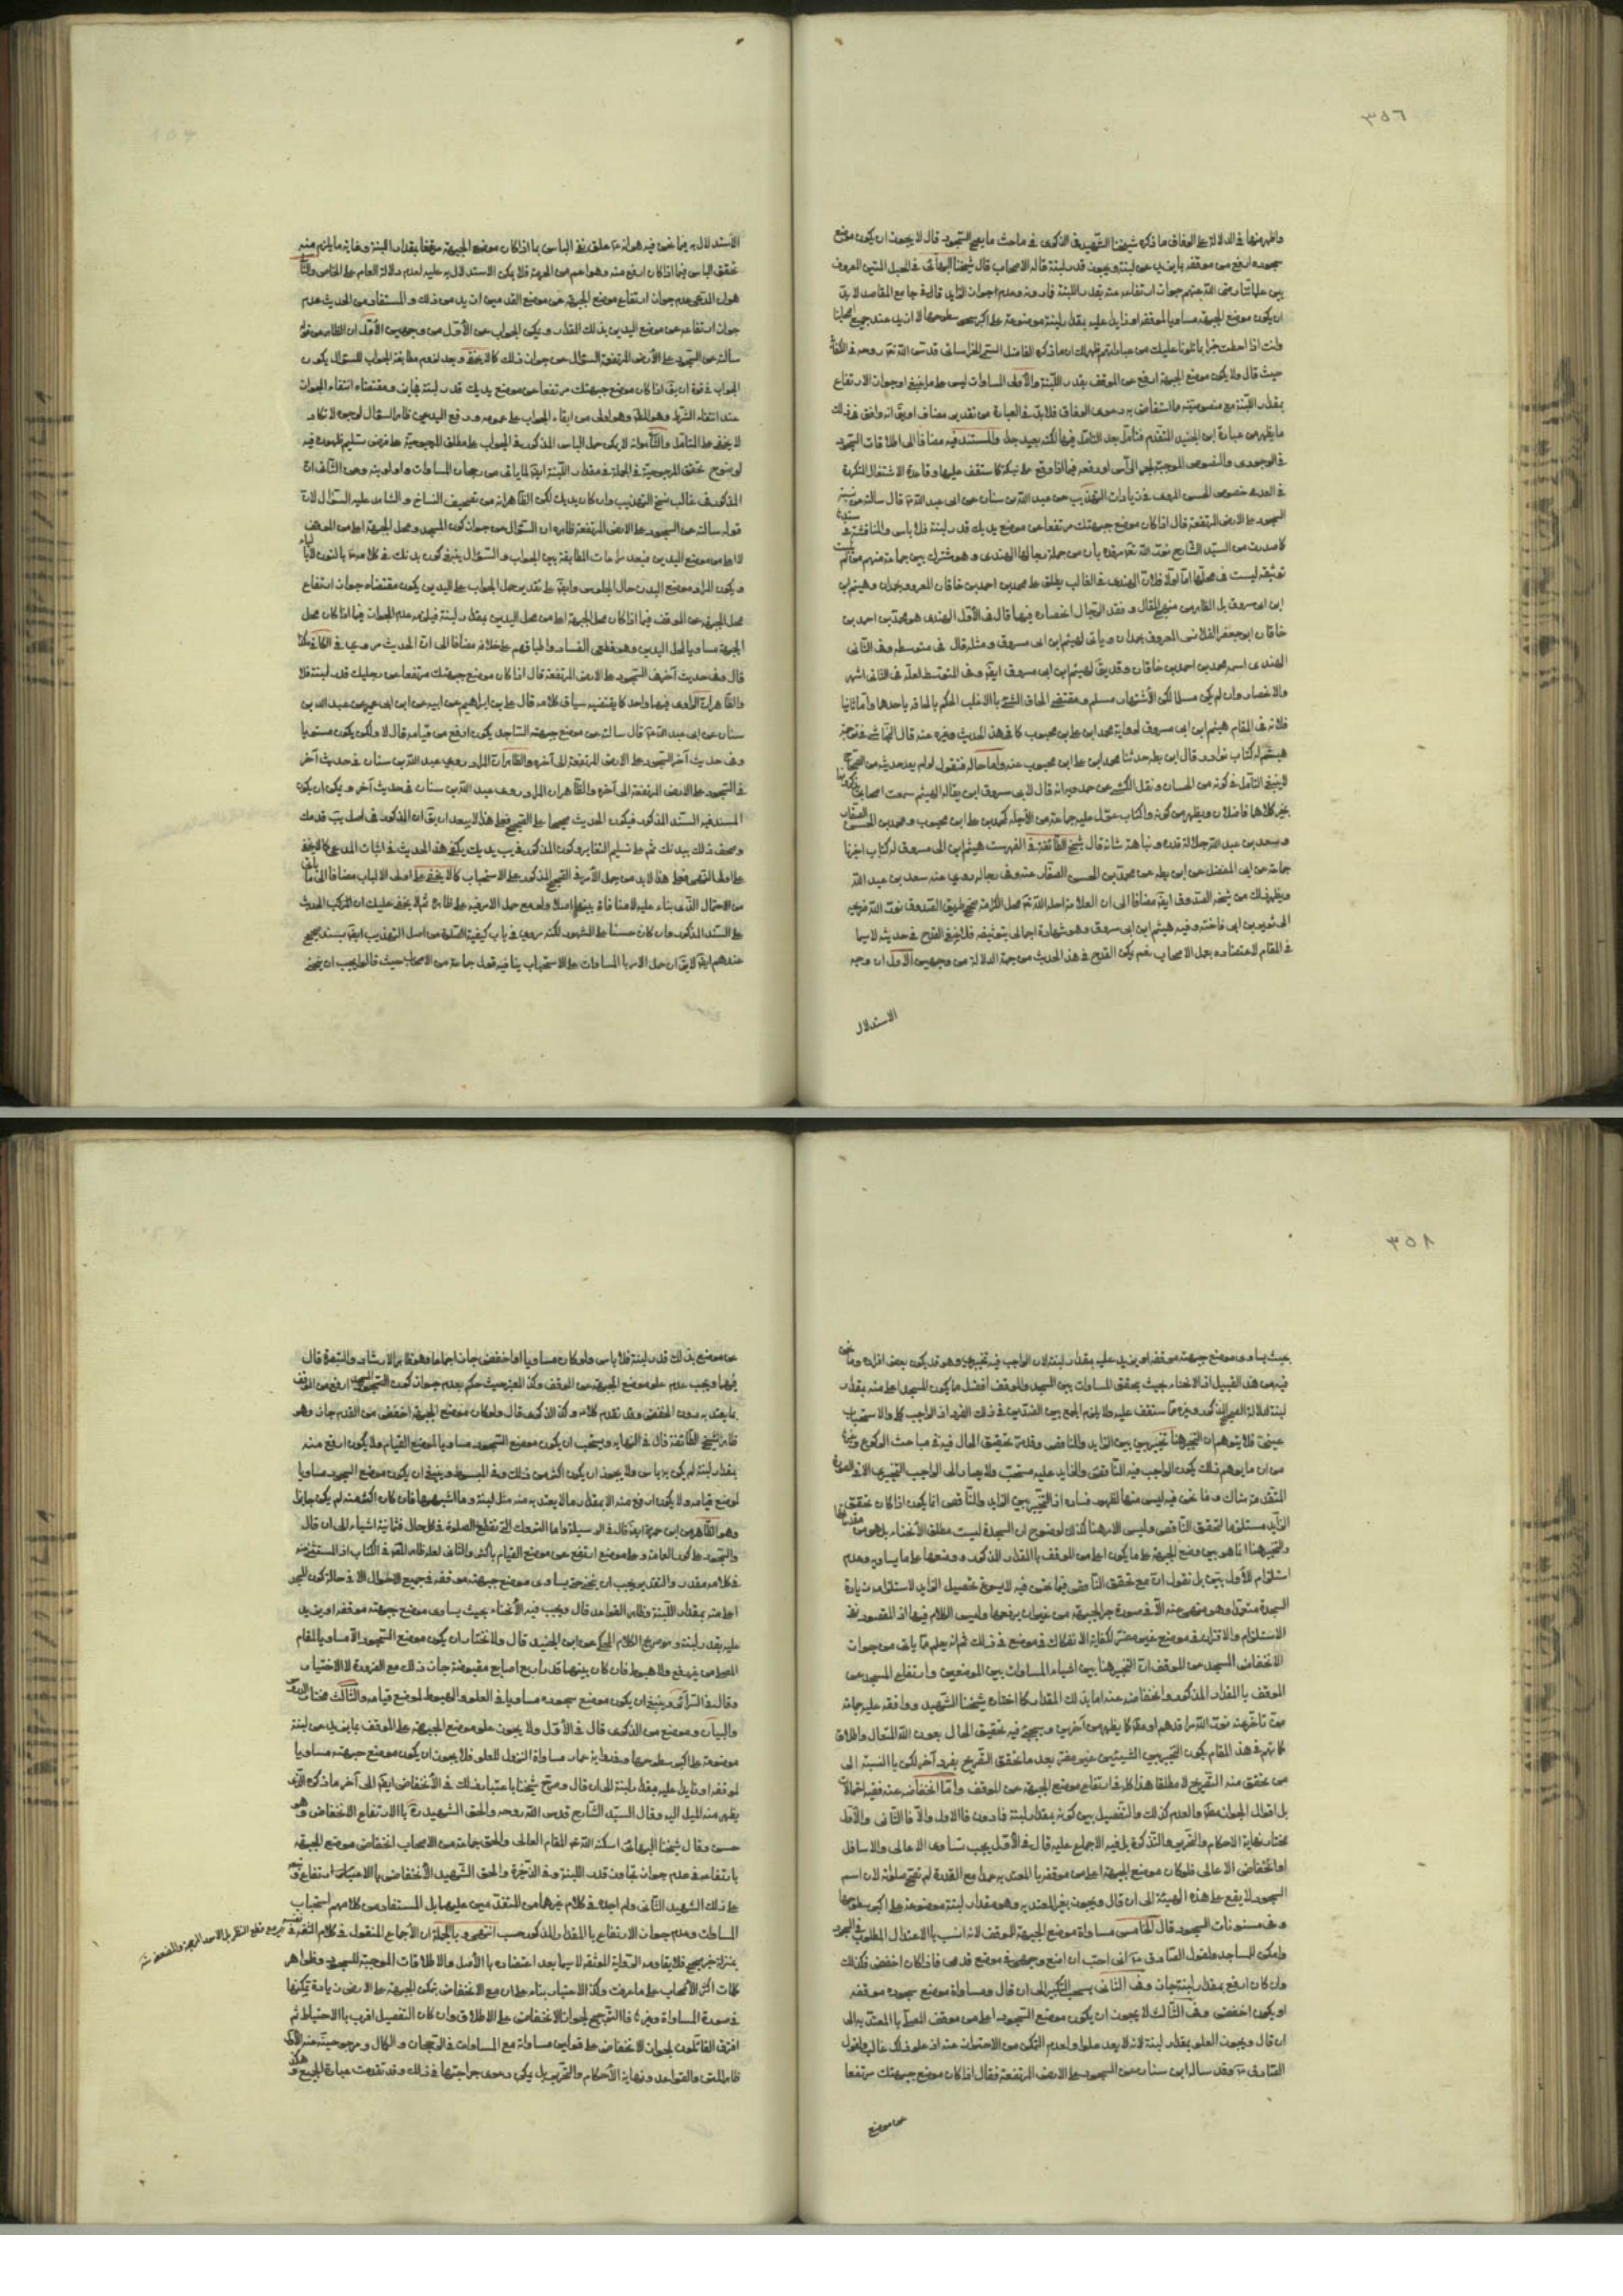 ٣٥٦
واظهر منها في الدلالة على الوفاق ما ذكره شيخنا الشهيد في الذكرى في مباحث ما يصح السجود قال لا يجوز ان يكون موضع
سجوده ارفع من موقفه بما يزيد عن لبنة ويجوز قدر لبنة قاله الاصحاب قال شيخنا البهائي في الحبل المتين المعروف
بين علمائنا رضي الله عنهم جواز ارتفاعه عنه بقدر اللبنة فما دونه وعدم جواز الزايد قال في جامع المقاصد لا بد
ان يكون موضع الجبهة مساويا لموقفه او زايدا عليه بمقدار لبنة موضوعة على اكبر سطوحها لا ازيد عند جميع اصحابنا
وانت اذا احطت خبرا بما تلونا عليك من عباراتهم ظهر لك ان ما ذكره الفاضل السمي الخراساني قدس الله تع روحه في
حيث قال ولا يكون موضع الجبهة ارفع عن الموقف بقدر اللبنة والأولى المساوات ليس على ما ينبغي او جواز الارتفاع
بمقدار اللبنة مع منصوصيته واستفاض به دعوى الوفاق فلا بد في العبارة من تقدير مضاف او يق انه وافق في ذلك
ما يظهر من عبارة ابن الجنيد المتقدم فتأمل بعد التأمل فيها لكنه بعيد جدا والمستند فيه مضافا الى اطلاقات السجود
في العدد خصوص الحسن المروي في زيادات التهذيب عن عبد الله بن سنان عن ابي عبد الله ع قال سالته عن
السجود على الارض المرتفعة قال اذا كان موضع جبهتك مرتفعا عن موضع يديك قدر لبنة فلا باس والمناقشة في
كما صدرت من السيد الشارح نور الله تع مرقده بان من جملة رجالها النهدي وهو مشترك بين جماعة منهم من لم
توثيقه ليست في محلها اما اولا فلان النهدي في الغالب يطلق على محمد بن احمد بن خاقان المعروف بحمدان وهيثم ابن
ابي مسروق بل الظاهر من منهج المقال ونقد الرجال اختصاره فيها قال في الأول النهدي هو محمد بن احمد بن
خاقان ابو جعفر القلانسي المعروف بحمدان وياتي لهيثم ابن ابي مسروق ومثله قال في متوسطه وفي الثاني
النهدي اسمه محمد بن احمد بن خاقان وقد يق لهيثم ابن ابي مسروق ايضا وفي المتوسط لعله في الثاني اشهر
فلانه في المقام هيثم ابن ابي مسروق لرواية محمد ابن علي بن محبوب كما في هذا الحديث وغيره عنه قال النجاشي في ترجمة
هيثم له كتاب نوادر قال ابن بطة حدثنا محمد ابن علي ابن محبوب عنه واما حاله فنقول لو لم يعد حديثه من الصحاح
لا ينبغي التأمل في كونه من الحسان ونقل الكشي عن حمدويه انه قال لابي مسروق ابن يقال له الهيثم سمعت اصحابي يذكرونها
بخير كلاهما فاضلان ويظهر من كونه ذا كتاب عول عليه جماعة من الأجلة كمحمد بن علي ابن محبوب ومحمد بن الحسن الصفار
وسعد بن عبد الله جلالة قدره ونباهة شانه قال شيخ الطائفة في الفهرست هيثم ابن ابي مسروق له كتاب اخبرنا
جماعة عن ابي المفضل عن ابن بطة عن محمد بن الحسن الصفار عنه وفي رجاله روى عنه سعد بن عبد الله
ويظهر ذلك من شيخنا الصدوق ايضا مضافا الى ان العلامة احله الله تع محل الكرامة صحح طريق الصدوق نور الله ضريحه
الى ثوير بن ابي فاخته وفيه هيثم ابن ابي مسروق وهو شهادة اجمالي بتوثيقه فلا ينبغي القدح في حديثه لا سيما
في المقام لاعتضاده بعمل الاصحاب نعم يمكن القدح في هذا الحديث من جهة الدلالة من وجهين الأول ان وجه
الاستدلال
الاستدلال به فيما نحن فيه هو انه ع علق نفي الباس بما اذا كان موضع الجبهة مرتفعا بقدر اللبنة وغاية ما يلزم منه
تحقق الباس فيما اذا كان ارفع منه وهو اعم من الحرمة فلا يمكن الاستدلال به عليه لعدم دلالة العام على الخاص والثاني
هو ان المدعى عدم جواز ارتفاع موضع الجبهة عن موضع القدمين ازيد من ذلك والمستفاد من الحديث عدم
جواز ارتفاعه عن موضع اليدين بذلك المقدار ويمكن الجواب عن الأول من وجهين الأول ان الظاهر من قوله
سالته عن السجود على الأرض المرتفعة السؤال عن جواز ذلك كما لا يخفى وبعد لزوم مطابقة الجواب للسؤال يكون
الجواب في قوة ان يق اذا كان موضع جبهتك مرتفعا عن موضع يديك قدر لبنة فجايز ومقتضاه انتفاء الجواز
عند انتفاء الشرط وهو المط وهو اولى من ابقاء الجواب على عمومه ورفع اليد عن ظاهر السؤال لوجوه لا تكاد
لا يخفى على المتأمل والثاني انه لا يمكن حمل الباس المذكور في الجواب على مطلق المرجوحية على فرض تسليم ظهوره فيه
لوضوح تحقق المرجوحية في الجملة في مقدار اللبنة ايضا لما ياتي من رجحان المساوات واولويته وعن الثاني ان
المذكور في غالب نسخ التهذيب وان كان يديك لكن الظاهر انه من تصحيف النساخ والشاهد عليه السؤال لان
قوله سالته عن السجود على الارض المرتفعة ظاهره ان السؤال عن جواز كون المسجد ومحل الجبهة اعلى من الموقف
لا اعلى من موضع اليدين فبعد مراعات المطابقة بين الجواب والسؤال ينبغي كون بدنك في كلامه ع بالنون لا بالياء
ويكون المراد موضع البدن حال الجلوس وايضا على تقدير حمل الجواب على اليدين يكون مقتضاه جواز ارتفاع
محل الجبهة عن الموقف فيما اذا كان محل الجبهة اعلى من محل اليدين بمقدار لبنة فيلزم عدم الجواز فيما اذا كان محل
الجبهة مساويا لمحل اليدين وهو قطعي الفساد واطباقهم على خلافه مضافا الى ان الحديث مروي في الكافي هكذا
قال وفي حديث آخر في السجود على الارض المرتفعة قال اذا كان موضع جبهتك مرتفعا عن رجليك قدر لبنة فلا
والظاهر ان الراوي فيهما واحد كما يقتضيه سياق كلامه قال علي بن ابراهيم عن ابيه عن ابن ابي عمير عن عبد الله بن
سنان عن ابي عبد الله ع قال سالته عن موضع جبهة الساجد يكون ارفع من قيامه قال لا ولكن يكون مستويا
وفي حديث آخر السجود على الارض المرتفعة الى آخره والظاهر ان المراد روى عبد الله بن سنان في حديث آخر
في السجود على الارض المرتفعة الى آخره والظاهر ان المراد روى عبد الله بن سنان في حديث آخر ويمكن ان يكون
المسند فيه السند المذكور فيكون الحديث صحيحا على الصحيح فعلى هذا لا يبعد ان يق ان المذكور في اصل يب قدمك
وصحف ذلك بيدنك ثم على تسليم التغاير وكون المذكور في يب يديك يكفي هذا الحديث في اثبات المدعى كما لا يخفى
على اولي النهى فعلى هذا لا بد من حمل الأمر في الصحيح المذكور على الاستحباب كما لا يخفى على اولي الالباب مضافا الى ما ياتي
من الاحتمال الذي بناء عليه لا منافاة بينهما اصلا ولو مع حمل الامر فيه على ظاهره ثم لا يخفى عليك ان المركب الحديث
على السند المذكور وان كان حسنا على المشهور لكنه مروي في باب كيفية الصلوة من اصل التهذيب ايضا بسند صحيح
عندهم ايضا لا يق ان حمل الامر بالمساوات على الاستحباب ينافيه قول جماعة من الاصحاب حيث قالوا يجب ان ينحني
٣٥٨
بحيث يساوي موضع جبهته موقفه او يزيد عليه بمقدار لبنة لان الواجب فيه تخييري وهو قد يكون بعض افراده وما نحن
فيه من هذا القبيل اذ الانحناء بحيث يتحقق المساوات بين المسجد والموقف افضل مما يكون المسجد اعلى منه بمقدار
لبنة لدلالة الصحيح المذكور وغيره مما ستقف عليه ولا يلزم الجمع بين الضدين في ذلك الفرد اذ الواجب كلي والاستحباب
عيني فلا يتوهم ان التخيير هنا تخيير بين الزايد والناقص وقد مر تحقيق الحال فيه في مباحث الركوع وغيره
من ان ما يوهم ذلك يكون الواجب فيه الناقص والزايد عليه مستحب ولا يصار الى الواجب التخييري الا في الصورة
المتقدمة هناك وما نحن فيه ليس منها لظهور فساده اذ التخيير بين الزايد والناقص انما يكون اذا كان تحقق
الزايد مستلزما لتحقق الناقص وليس الامر هنا كذلك لوضوح ان السجدة ليست مطلق الأنحناء بل هو من مقدماتها
والتخيير هنا انما هو بين وضع الجبهة على ما يكون اعلى من الموقف بالمقدار المذكور ووضعها على ما يساويه وعدم
استلزام الأول بين بل نقول ان مع تحقق الناقص فيما نحن فيه لا يسوغ تحصيل الزايد لاستلزامه زيادة
السجدة متعمدا وهو منهي عنه الا في صورة جر الجبهة من غير ان يرفعها وليس الكلام فيها اذ المقصود نفي
الاستلزام والاقتران في موضع غير مضر لكفاية الانفكاك في موضع في ذلك ثم انه يعلم مما ياتي من جواز
الانخفاض المسجد عن الموقف ان التخيير هنا بين اشياء المساوات بين الموضعين وارتفاع المسجد عن
الموقف بالمقدار المذكور وانخفاضه عنه اما بذلك المقدار كما اختاره شيخنا الشهيد ووافقه عليه جماعة
ممن تأخر عنه نور الله مراقدهم او مط كما يظهر من آخرين وسيجيء فيه تحقيق الحال بعون الله المتعال واطلاق
كلماتهم في هذا المقام يكون التخيير بين الشيئين غير مضر بعد ما تحقق التصريح بفرد آخر لكن بالنسبة الى
من تحقق منه التصريح لا مطلقا هذا كله في ارتفاع موضع الجبهة عن الموقف واما انخفاضه عنه ففيه احتمالات
بل اقوال الجواز مط والعدم كذلك والتفصيل بين كونه بمقدار لبنة فما دون فالاول والا فالثاني والأول
مختار نهاية الاحكام والتحرير والتذكرة بل فيه الاجماع عليه قال في الأول يجب تساوي الاعالي والاسافل
او انخفاض الاعالي فلو كان موضع الجبهة اعلى من موقفه بالمعتد به عمدا مع القدرة لم تصح صلوته لان اسم
السجود لا يقع على هذه الهيئة الى ان قال ويجوز بغير المعتد به وهو مقدار لبنة موضوعة على اكبر سطوحها
وفي مسنونات السجود قال الخامس مساواة موضع الجبهة للموقف لانه انسب بالاعتدال المطلوب في السجود
وامكن للساجد ولقول الصادق ع اني احب ان اضع وجهي في موضع قدمي فاذا كان اخفض فكذلك
وان كان ارفع بمقدار لبنة جاز وفي الثاني يستحب التكبير الى ان قال ومساواة موضع سجوده موقفه
او يكون اخفض وفي الثالث لا يجوز ان يكون موضع السجود اعلى من موقف المصلي بالمعتد به الى
ان قال ويجوز العلو بمقدار لبنة لانه لا يعد علوا ولعدم التمكن من الاحتراز عنه اذ علو ذلك غالب ولقول
الصادق ع وقد ساله ابن سنان عن السجود على الارض المرتفعة فقال اذا كان موضع جبهتك مرتفعا
عن موضع
عن موضع بدنك قدر لبنة فلا باس ولو كان مساويا او اخفض جاز اجماعا وهو ظاهر الارشاد والتبصرة قال
فيهما ويجب عدم علو موضع الجبهة عن الموقف وكذا المعتبر حيث حكم بعدم جواز كون السجود ارفع من الموقف
بما يعتد به دون الخفض وقد تقدم كلامه وكذا الذكرى قال ولو كان موضع الجبهة اخفض من القدم جاز وهو
ظاهر شيخ الطائفة قال في النهاية ويستحب ان يكون موضع السجود مساويا لموضع القيام ولا يكون ارفع منه
بمقدار لبنة لم يكن به باس ولا يجوز ان يكون اكثر من ذلك وفي المبسوط وينبغي ان يكون موضع السجود مساويا
لموضع قيامه ولا يكون ارفع منه الا بمقدار ما لا يعتد به منه مثل لبنة وما اشبهها فان كان اكثر منه لم يكن جايزا
وهو الظاهر من ابن حمزة ايضا قال في الوسيلة واما التروك التي تقطع الصلوة في كل حال فثمانية اشياء الى ان قال
والسجود على كور العمامة وعلى موضع ارتفع عن موضع القيام باكثر والثاني لعله ظاهر المقنعة في الكتاب اذ المستثنى منه
في كلامه مقدر والتقدير يجب ان ينحني حتى يساوي موضع جبهته موقفه في جميع الاحوال الا في حال كون المسجد
اعلى منه بمقدار اللبنة وظاهر القواعد قال ويجب فيه الأنحناء بحيث يساوي موضع جبهته موقفه او يزيد
عليه بقدر لبنة وهو صريح الكلام المحكي عن ابن الجنيد قال ولا نختار ان يكون موضع السجود الا مساويا لمقام
المصلي من غير رفع ولا هبوط فان كان بينهما قدر اربع اصابع مقبوضة جاز ذلك مع الضرورة لا الاختيار
وقال في السرائر وينبغي ان يكون موضع سجوده مساويا في العلو والهبوط لموضع قيامه والثالث مختار الدروس
والبيان وموضع من الذكرى قال في الأول ولا يجوز علو موضع الجبهة على الموقف بما يزيد عن لبنة
موضوعة على اكبر سطوحها وفي رواية عمار مساواة النزول للعلو فلا يجوز ان يكون موضع جبهته مساويا
لموقفه او زايدا عليه بمقدار لبنة الى ان قال وصرح شيخنا باعتبار ذلك في الأنخفاض ايضا الى آخر ما ذكره الذي
يظهر منه الميل اليه وقال السيد الشارح قدس الله روحه والحق الشهيد ره بالارتفاع الانخفاض وهو
حسن وقال شيخنا البهائي اسكنه الله تع المقام العالي والحق جماعة من الاصحاب انخفاض موضع الجبهة
بارتفاعه في عدم جواز تجاوز قدر اللبنة وفي الذخيرة والحق الشهيد الأنخفاض بالارتفاع وتبعه
على ذلك الشهيد الثاني ولم اجده في كلام غيرهما من المتقدمين عليهما بل المستفاد من كلامهم استحباب
المساوات وعدم جواز الارتفاع بالمقدار المذكور حسب انتهى وبالجملة ان الأجماع المنقول في كلام الثقة
بمنزلة خبر صحيح فلا يقاومه الرواية الموثقة لا سيما بعد اعتضاده بالأصل والاطلاقات الموجبة للسجود وظواهر
كلمات اكثر الأصحاب على ما عرفت وكذا الاعتبار بناء على ان مع الانخفاض يمكن الجبهة على الارض زيادة تمكنها
في صورة المساواة وغيره فالترجيح لجواز الانخفاض على الاطلاق وان كان التفصيل اقرب بالاحتياط ثم
افترق القائلون بجواز الانخفاض على قولين مساواته مع المساوات في الرجحان والكمال ومرجوحيته عنه الأول
ظاهر المتن والقواعد ونهاية الأحكام والتحرير بل يمكن دعوى صراحتها في ذلك وقد تقدمت عبارة الجميع وهكذا